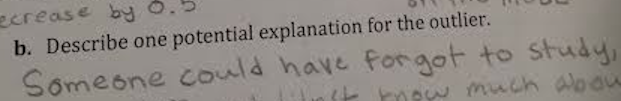 ecrease by 0.5
b. Describe one potential explanation for the outlier.
Someone could have forgot to study,
know much abou